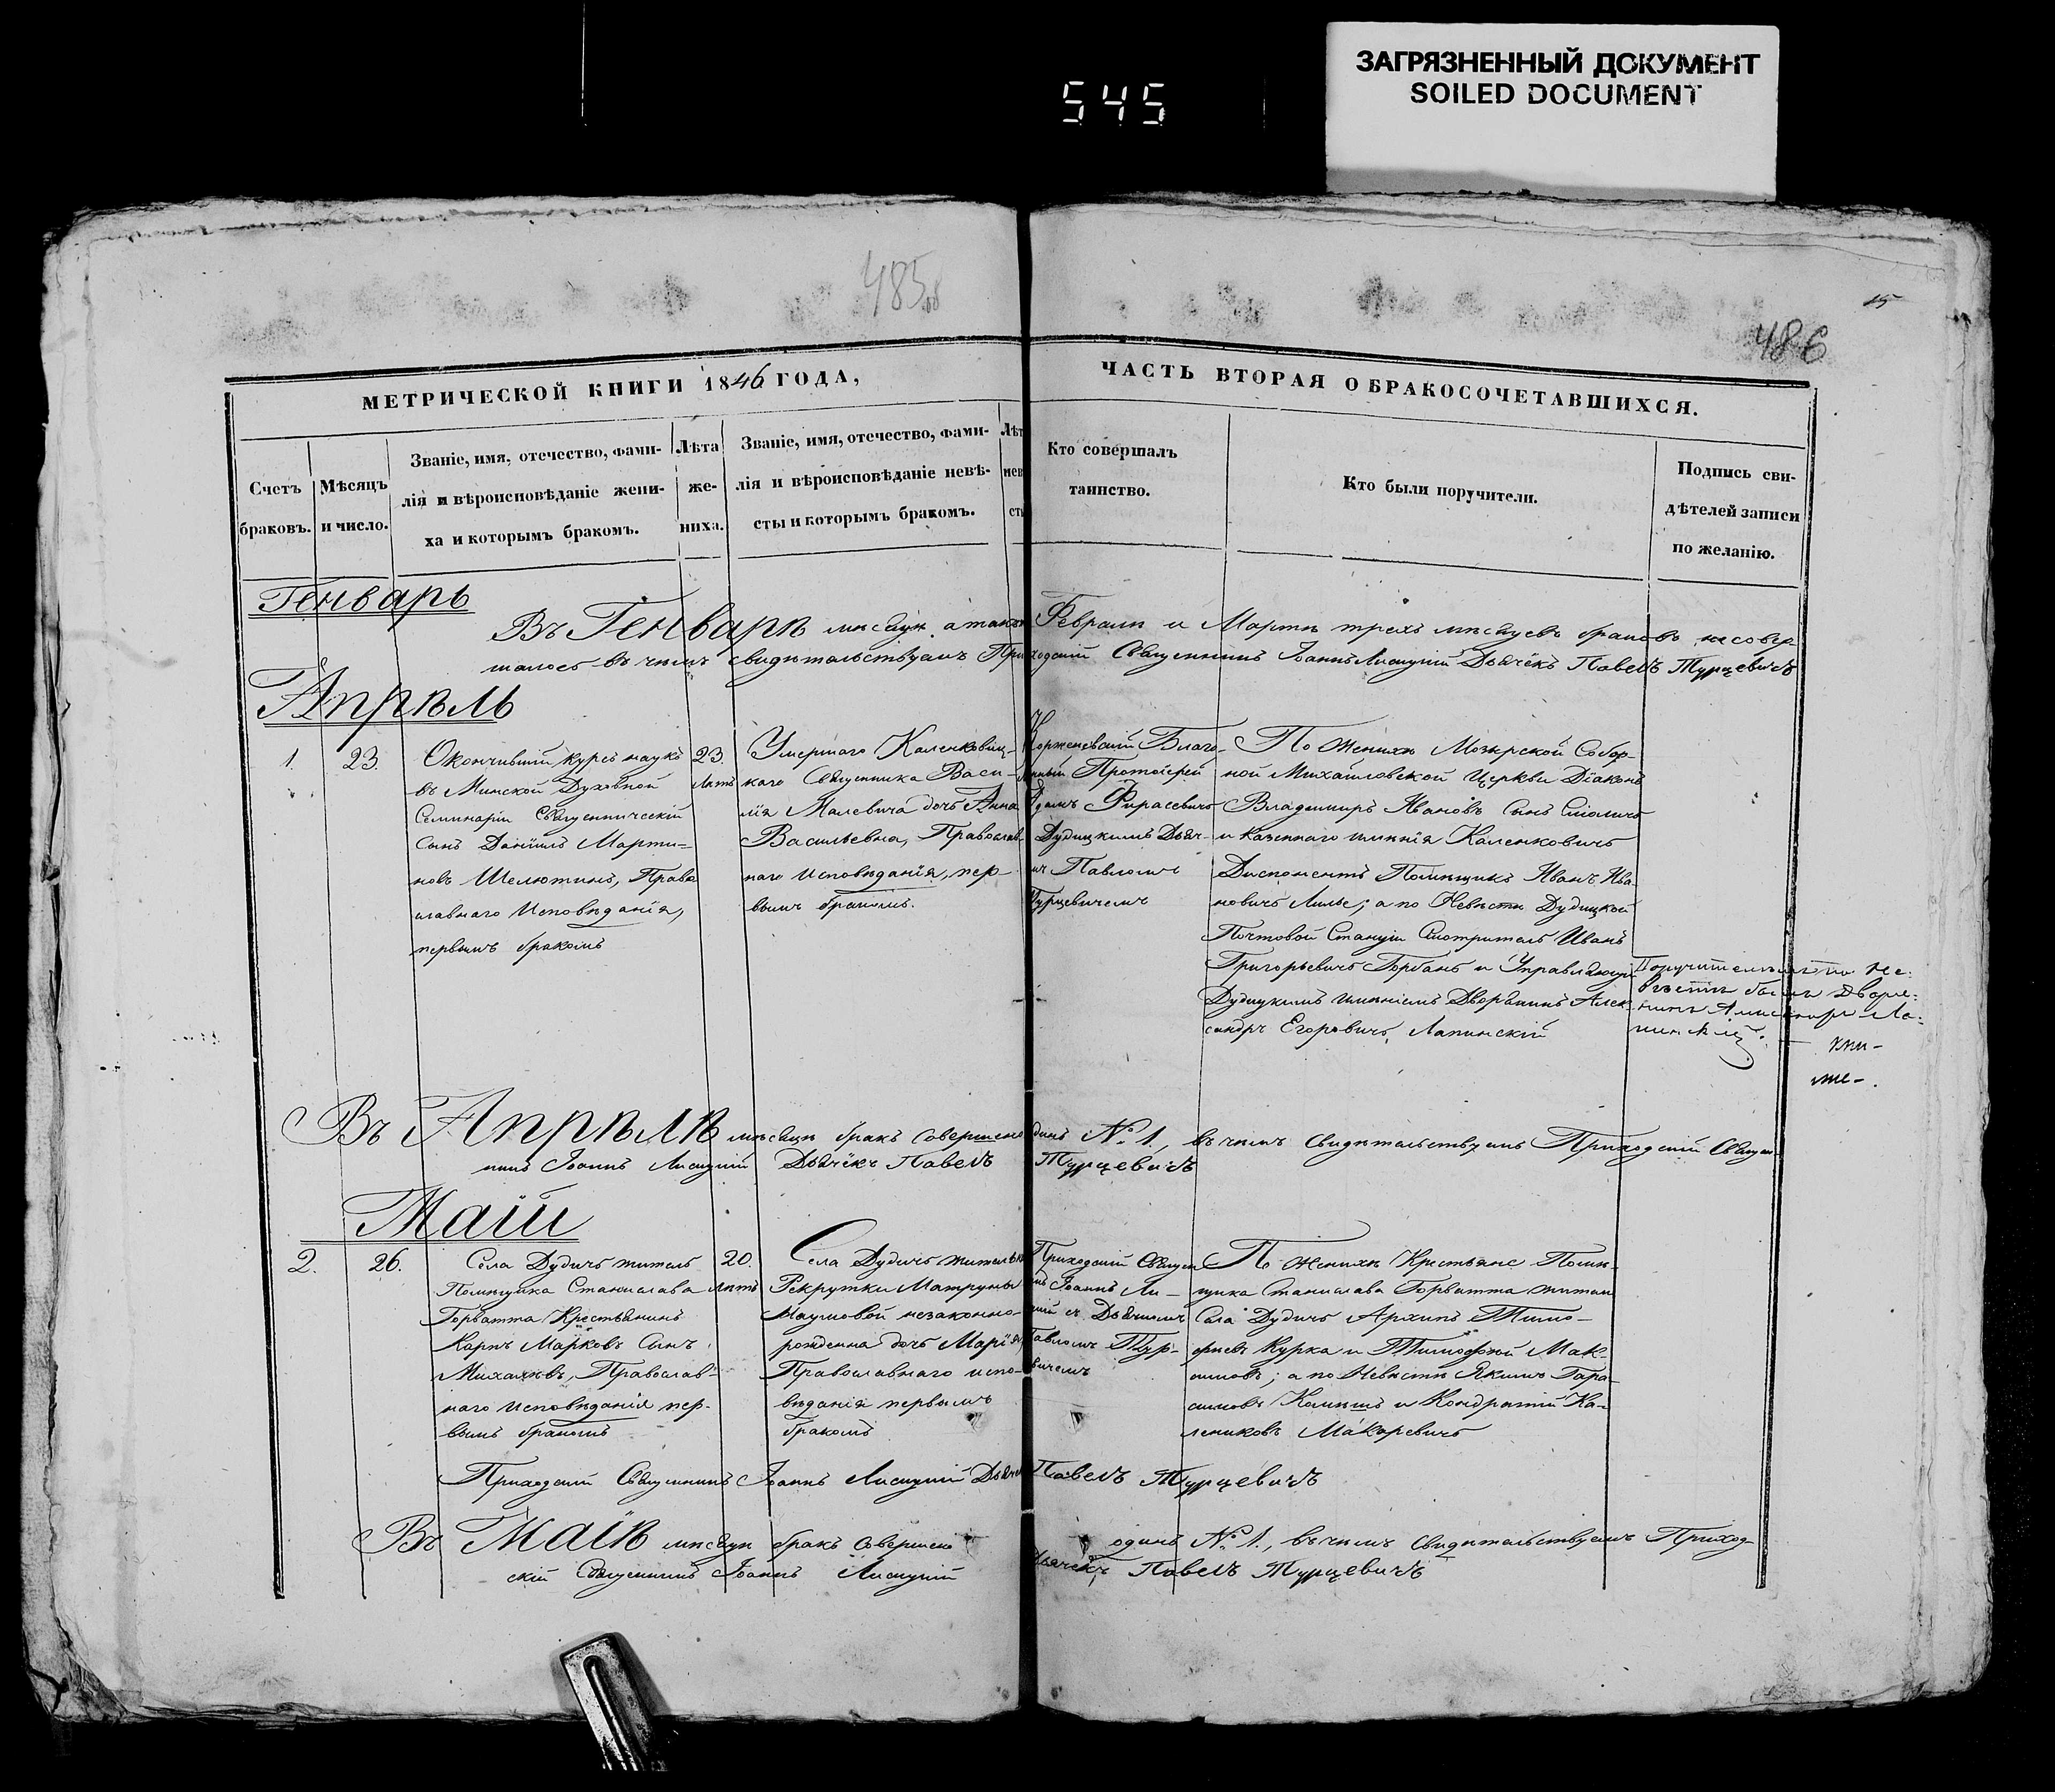 ЗАГРЯЗНЕННЫЙ ДОКУМЕНТ
SOILED DOCUMENT
545
485
15
486
МЕТРИЧЕСКОЙ КНИГИ 1846 ГОДА,
ЧАСТЬ ВТОРАЯ О БРАКОСОЧЕТАВШИХСЯ.
Счетъ
браковъ.
Мѣсяцъ
и число.
Званіе, имя, отечество, фами-
лія и вѣроисповѣданіе жени-
ха и которымъ бракомъ.
Лѣта
же-
ниха.
Званіе, имя, отечество, фами-
лія и вѣроисповѣданіе невѣ-
сты и которымъ бракомъ.
Лѣт
нев
ст
Кто совершалъ
таинство.
Кто были поручители.
Подпись сви-
дѣтелей записи
по желанію.
Генварь
Въ Генварѣ мѣсяцѣ, а такж Февралѣ и Мартѣ трехъ мѣсяцевъ браковъ несовер-
шалось въ чемъ свидѣтельствуемъ Приходскій Священникъ Іоаннъ Лисицкій Дьячёкъ Павелъ Турцевичъ
Апрѣль
1.
23.
Окончившій курсъ наукъ
въ Минской Духовной
Семинаріи Священническій
Сынъ Даніилъ Марти-
новъ Шелютинъ, Право
славнаго Исповѣданія,
первымъ бракомъ
23.
лѣтъ
Умершаго Каленковиц-
каго Священника Васи-
лія Малевича дочь Анна
Васильевна, Православ-
наго Исповѣданія, пер-
вымъ бракомъ.
Корженевскій Благо-
Протоіерей
Фирасевичъ
Дудицкимъ Дьяч-
Павломъ
Турцевичемъ
По Женихѣ Мозырской Собор-
ной Михайловской Церкви Діаконъ
Владимиръ Ивановъ Сынъ Смоличъ
и Казеннаго имѣнія Каленковичъ
Диспонентъ Помѣщикъ Иванъ Ива-
новичъ Лилье; а по Невѣстѣ Дудицкой
Почтовой Станціи Смотритель Иванъ
Григорьевичъ Горбань и Управляющій
Дудицкимъ имѣніемъ Дворянинъ Алек-
сандръ Егоровичъ Лапинскій
Поручителемъ по Не-
вѣстѣ былъ Дворя-
нинъ Александръ Ла-
пинскій
Въ Апрѣлѣ мѣсяцѣ бракъ Совершено динъ № 1., въ чемъ Свидѣтельствуемъ Приходскій Священ-
никъ Іоаннъ Лисицкій Дьячёкъ Павелъ Турцевичъ
Маій
2.
26.
Села Дудичъ житель
Помѣщика Станислава
Горватта Крестьянинъ
Карпъ Марковъ Сынъ
Православ-
наго Исповѣданія пер-
вымъ бракомъ
20.
лѣтъ
Села Дудичъ жительки
Рекрутки Матруны
Наумовой незаконно-
рожденна дочь Марія
Православнаго испо-
вѣданія первымъ
бракомъ
Приходскій Священ
Іоаннъ Ли-
цкій съ Дьячкомъ
Павломъ Тур-
вичемъ
По Женихѣ Крестьяне Помѣ-
щика Станислава Горватта жители
Села Дудичъ Архипъ Тимо-
феевъ Курка и Тимофей Мак-
симовъ; а по Невѣстѣ Якимъ Гара-
симовъ и Кондратій Ка-
лениковъ Макаревичъ
Приходскій Священникъ Іоаннъ Лисицкій Дьячекъ Павелъ Турцевичъ
Въ Маіѣ мѣсяцѣ бракъ Совершено одинъ № 1., въ чемъ Свидѣтельствуемъ Приход-
скій Священникъ Іоаннъ Лисицкій Дьячекъ Павелъ Турцевичъ